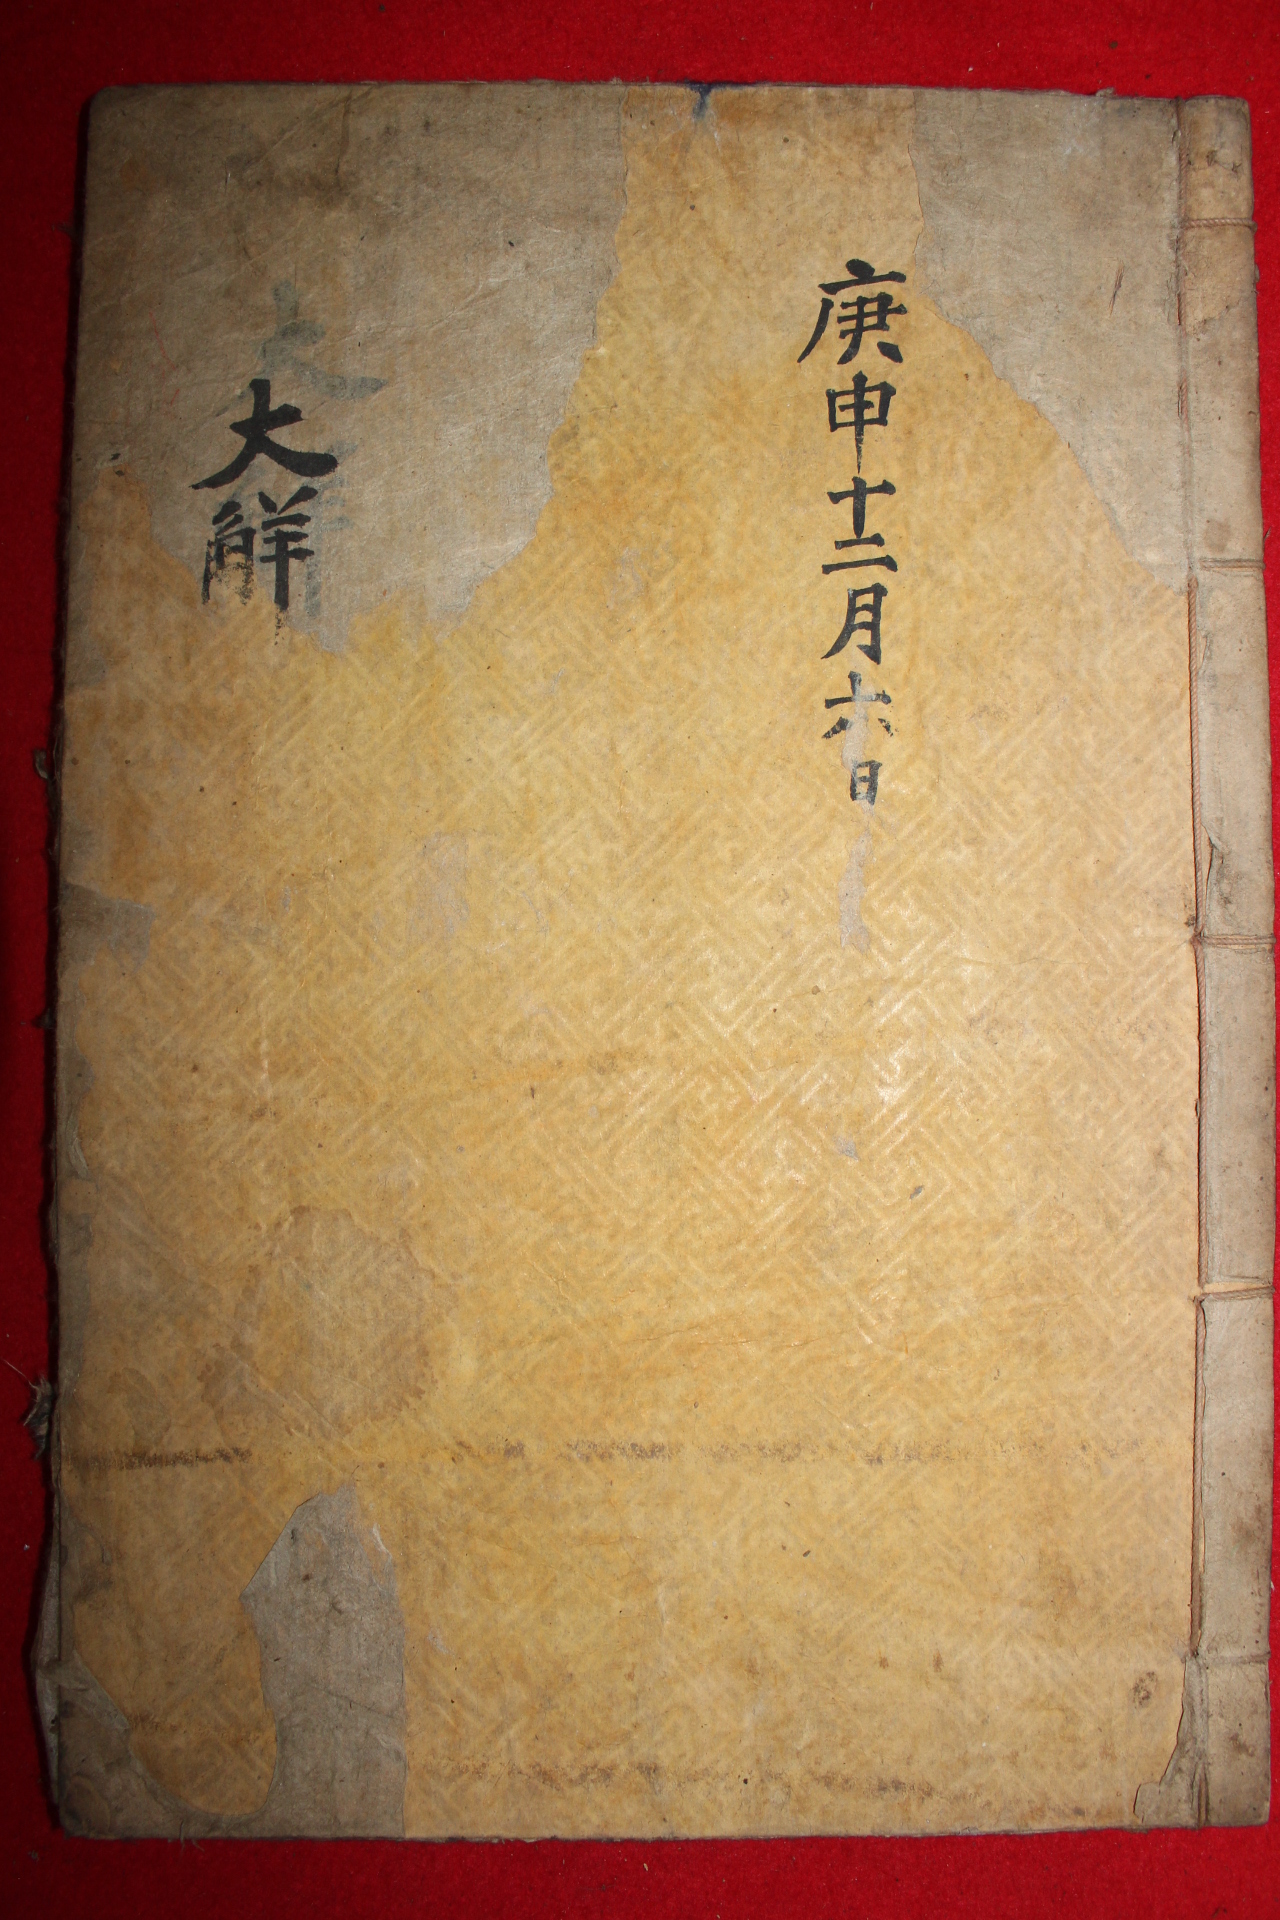 庚申十二月六日
大觧